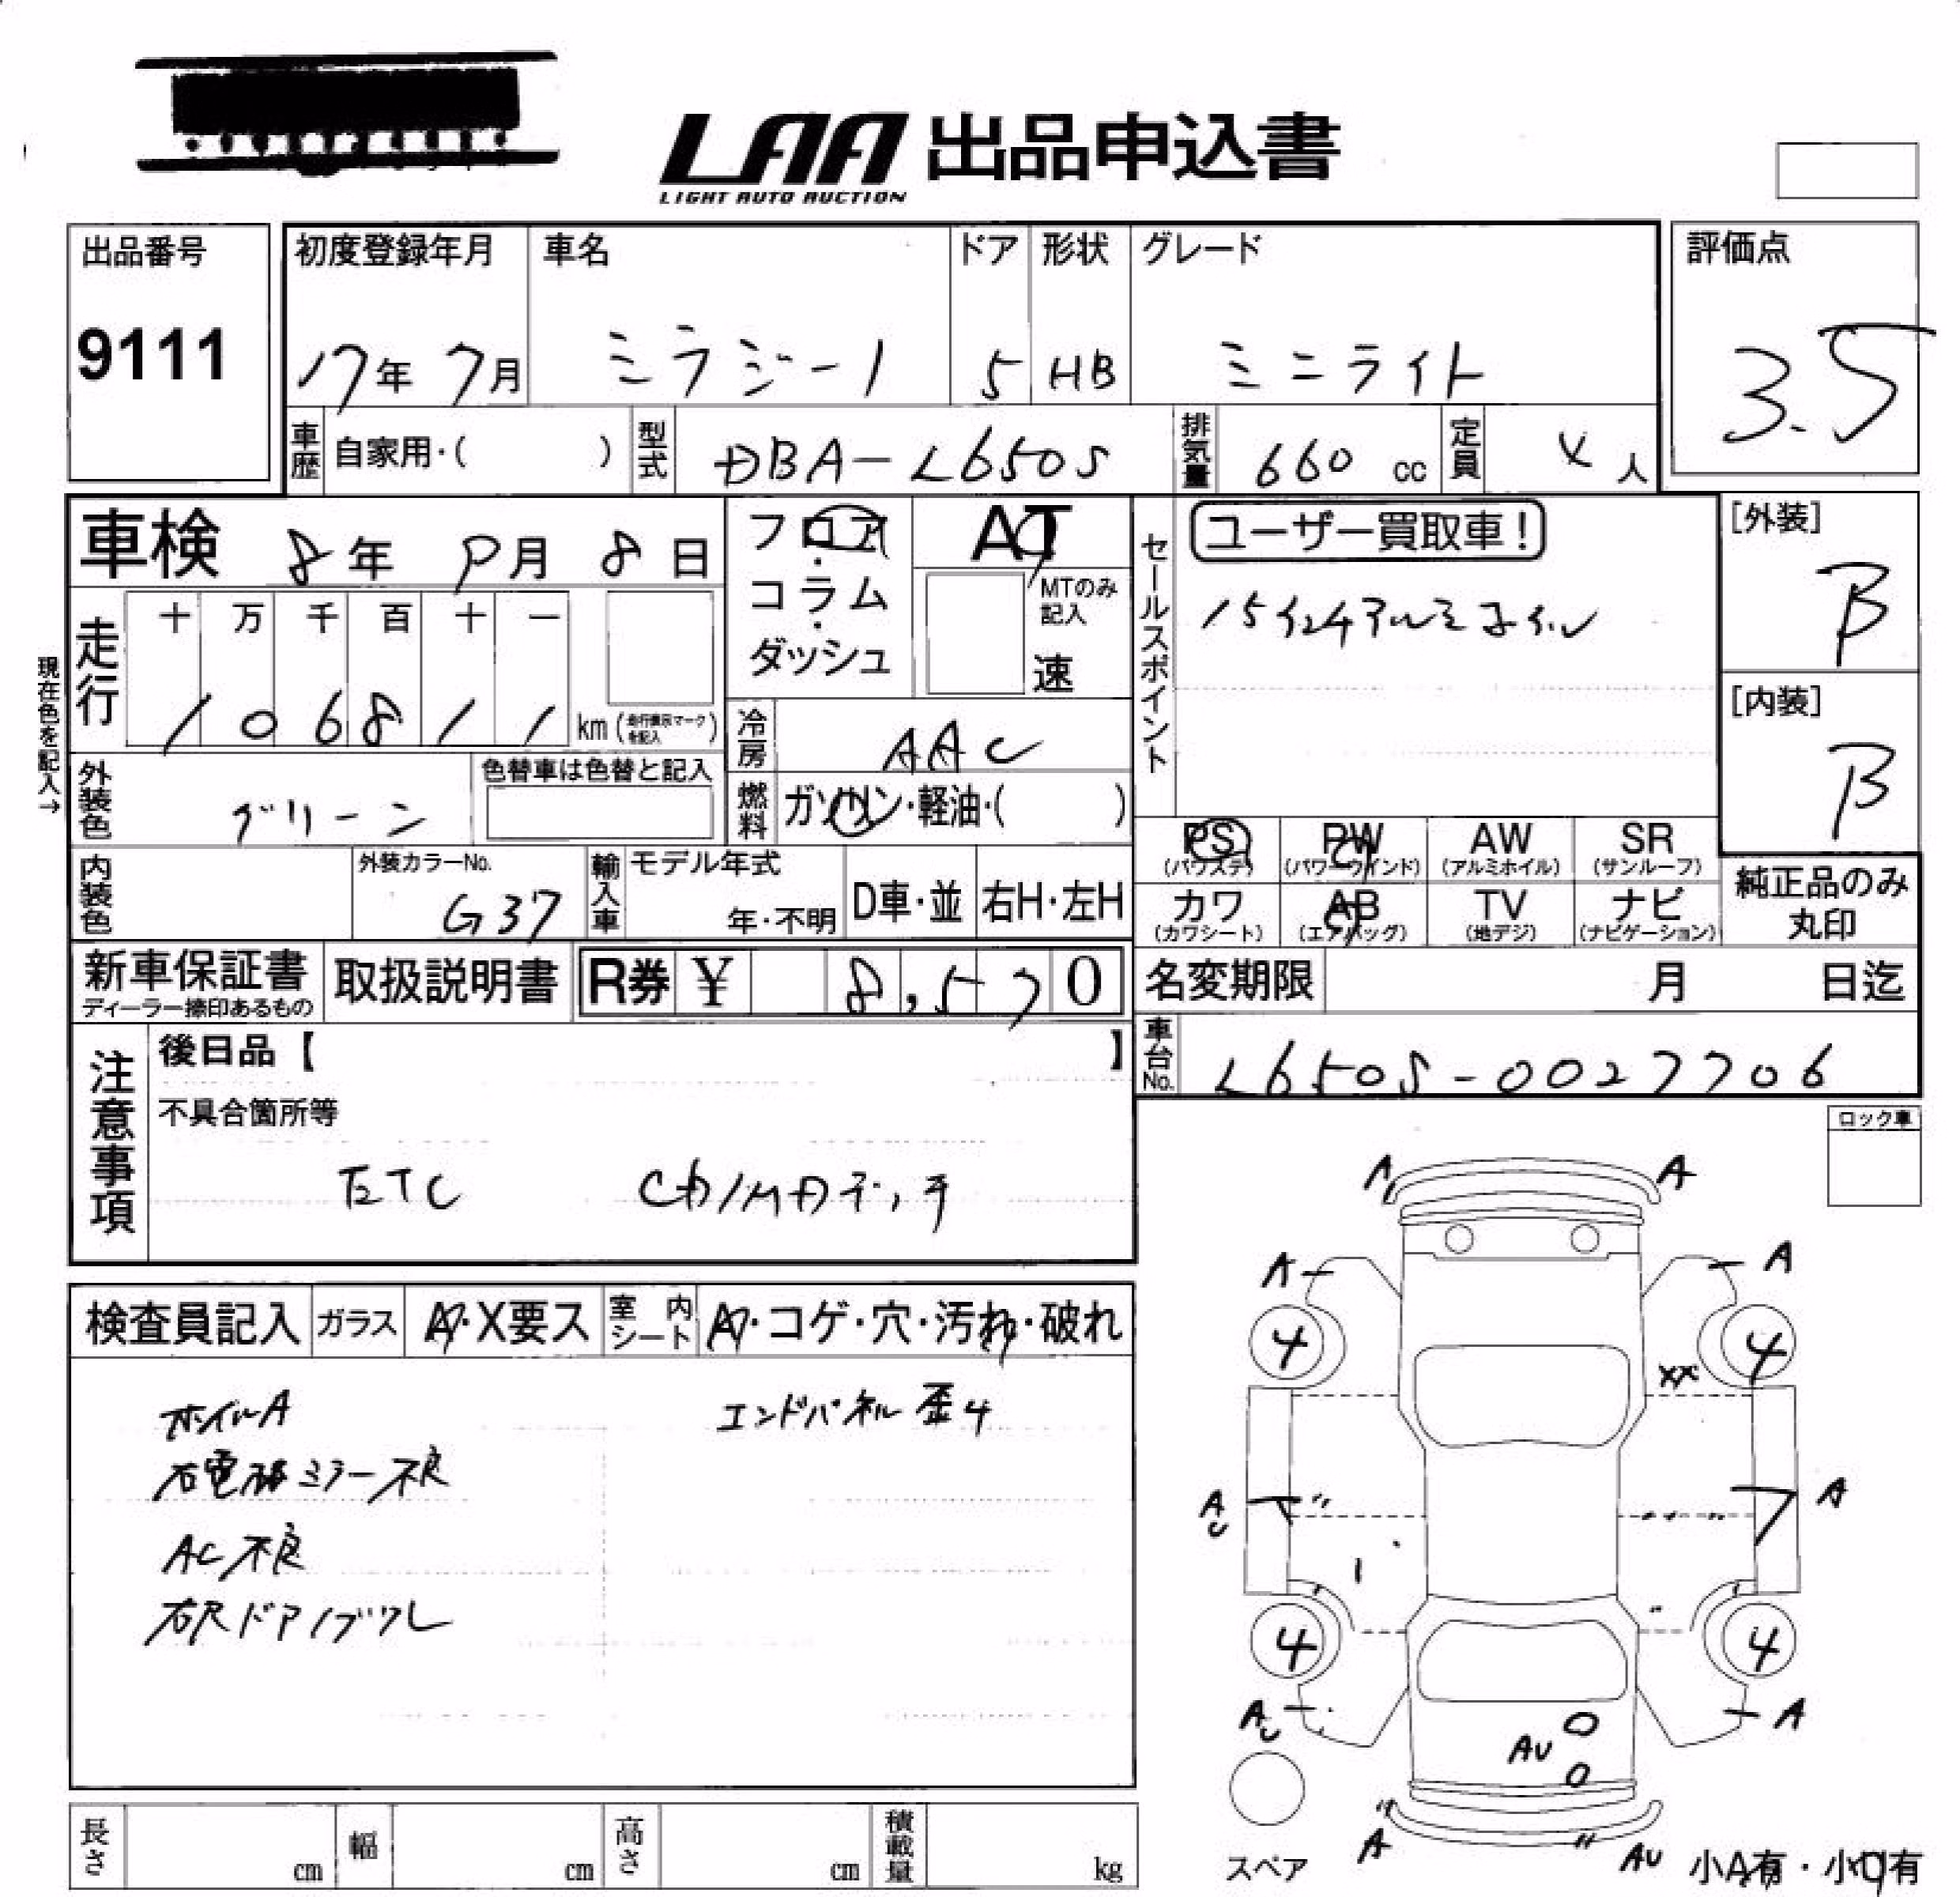 LAA 出品申込書
LIGHT AUTO AUCTION
出品番号
9111
初度登録年月 車名 ドア 形状 グレード
17年 7月 ミラジーノ 5 HB ミニライト
評価点
3.5
車歴 自家用・( ) 型式 DBA-L650S 排気量 660 cc 定員 4 人
車検 8年 9月 8日
フロア・コラム・ダッシュ
AT
MTのみ記入
速
セールスポイント
ユーザー買取車!
15インチアルミホイル
[外装]
B
[内装]
B
現在色を記入→
走行 十 万 千 百 十 一
1 0 6 8 1 1 km (走行表示マークを記入)
冷房 AAC
燃料 ガソリン・軽油・( )
外装色 グリーン
色替車は色替と記入
内装色
外装カラーNo.
G37
輸入車 モデル年式
年・不明
D車・並 右H・左H
PS PW AW SR
(パワステ) (パワーウインド) (アルミホイル) (サンルーフ)
カワ AB TV ナビ
(カワシート) (エアバッグ) (地デジ) (ナビゲーション)
純正品のみ
丸印
新車保証書
ディーラー捺印あるもの
取扱説明書 R券 ¥ 8,570
名変期限 月 日迄
車台No. L650S-0027706
注意事項
後日品【 】
不具合箇所等
ETC CD/MDデッキ
ロック車
検査員記入 ガラス A・X要ス 室内シート A・コゲ・穴・汚れ・破れ
ホイルA エンドパネル歪4
右電格ミラー不良
AC不良
右Rドアノブワレ
A A
A A
4 4
XX
A A
U
4 4
A A
U
AU
A AU
スペア
小A有・小U有
長さ cm 幅 cm 高さ cm 積載量 kg